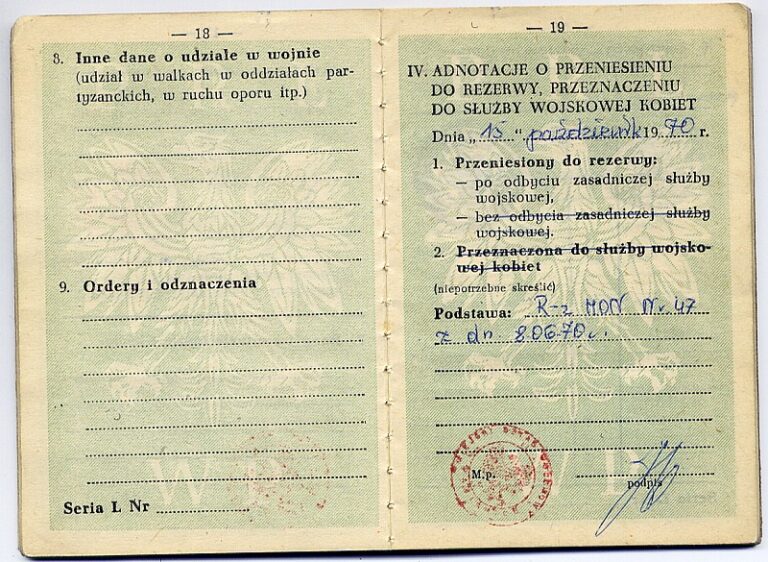 — 18 —
8. Inne dane o udziale w wojnie
(udział w walkach w oddziałach par-
tyzanckich, w ruchu oporu itp.)
9. Ordery i odznaczenia
Seria L Nr
— 19 —
IV. ADNOTACJE O PRZENIESIENIU
DO REZERWY, PRZEZNACZENIU
DO SŁUŻBY WOJSKOWEJ KOBIET
Dnia „15" październik 1970 r.
1. Przeniesiony do rezerwy:
— po odbyciu zasadniczej służby
wojskowej,
— bez odbycia zasadniczej służby
wojskowej.
2. Przeznaczona do służby wojsko-
wej kobiet
(niepotrzebne skreślić)
Podstawa: R-z MON Nr 47
z dn 8.06.70 r.
M.p.
podpis